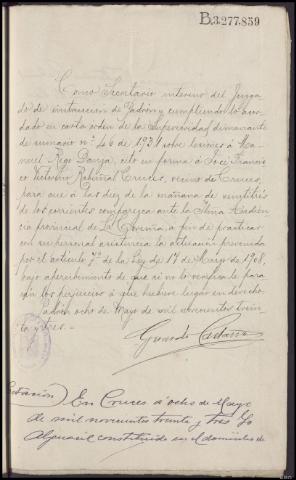 B.3.277.859
Como Secretario interino del Juzga-
do de instruccion de Padrón y cumpliendo lo acor-
dado en carta orden de la Superioridad dimanante
de sumario nº 46 de 1931 sobre lesiones á Ma-
nuel Rego Barja, cito en forma á José Francis-
co Victorino Rebiñal Cruces, vecino de Cruces,
para que á las diez de la mañana de veintitrés
de los corrientes comparezca ante la Ilma Audien-
cia provincial de La Coruña a fin de practicar
con su personal asistencia la actuación prevenida
por el articulo 7º de la Ley de 17 de Mayo de 1908,
bajo apercibimiento de que si no lo verifica le para-
rán los perjuicios á que hubiere lugar en derecho
Padron ocho de Mayo de mil novecientos trein-
ta y tres.-
Gerardo
Citación) En Cruces á ocho de Mayo
de mil novecientos treinta y tres Yo
Alguacil constituido en el domicilio de